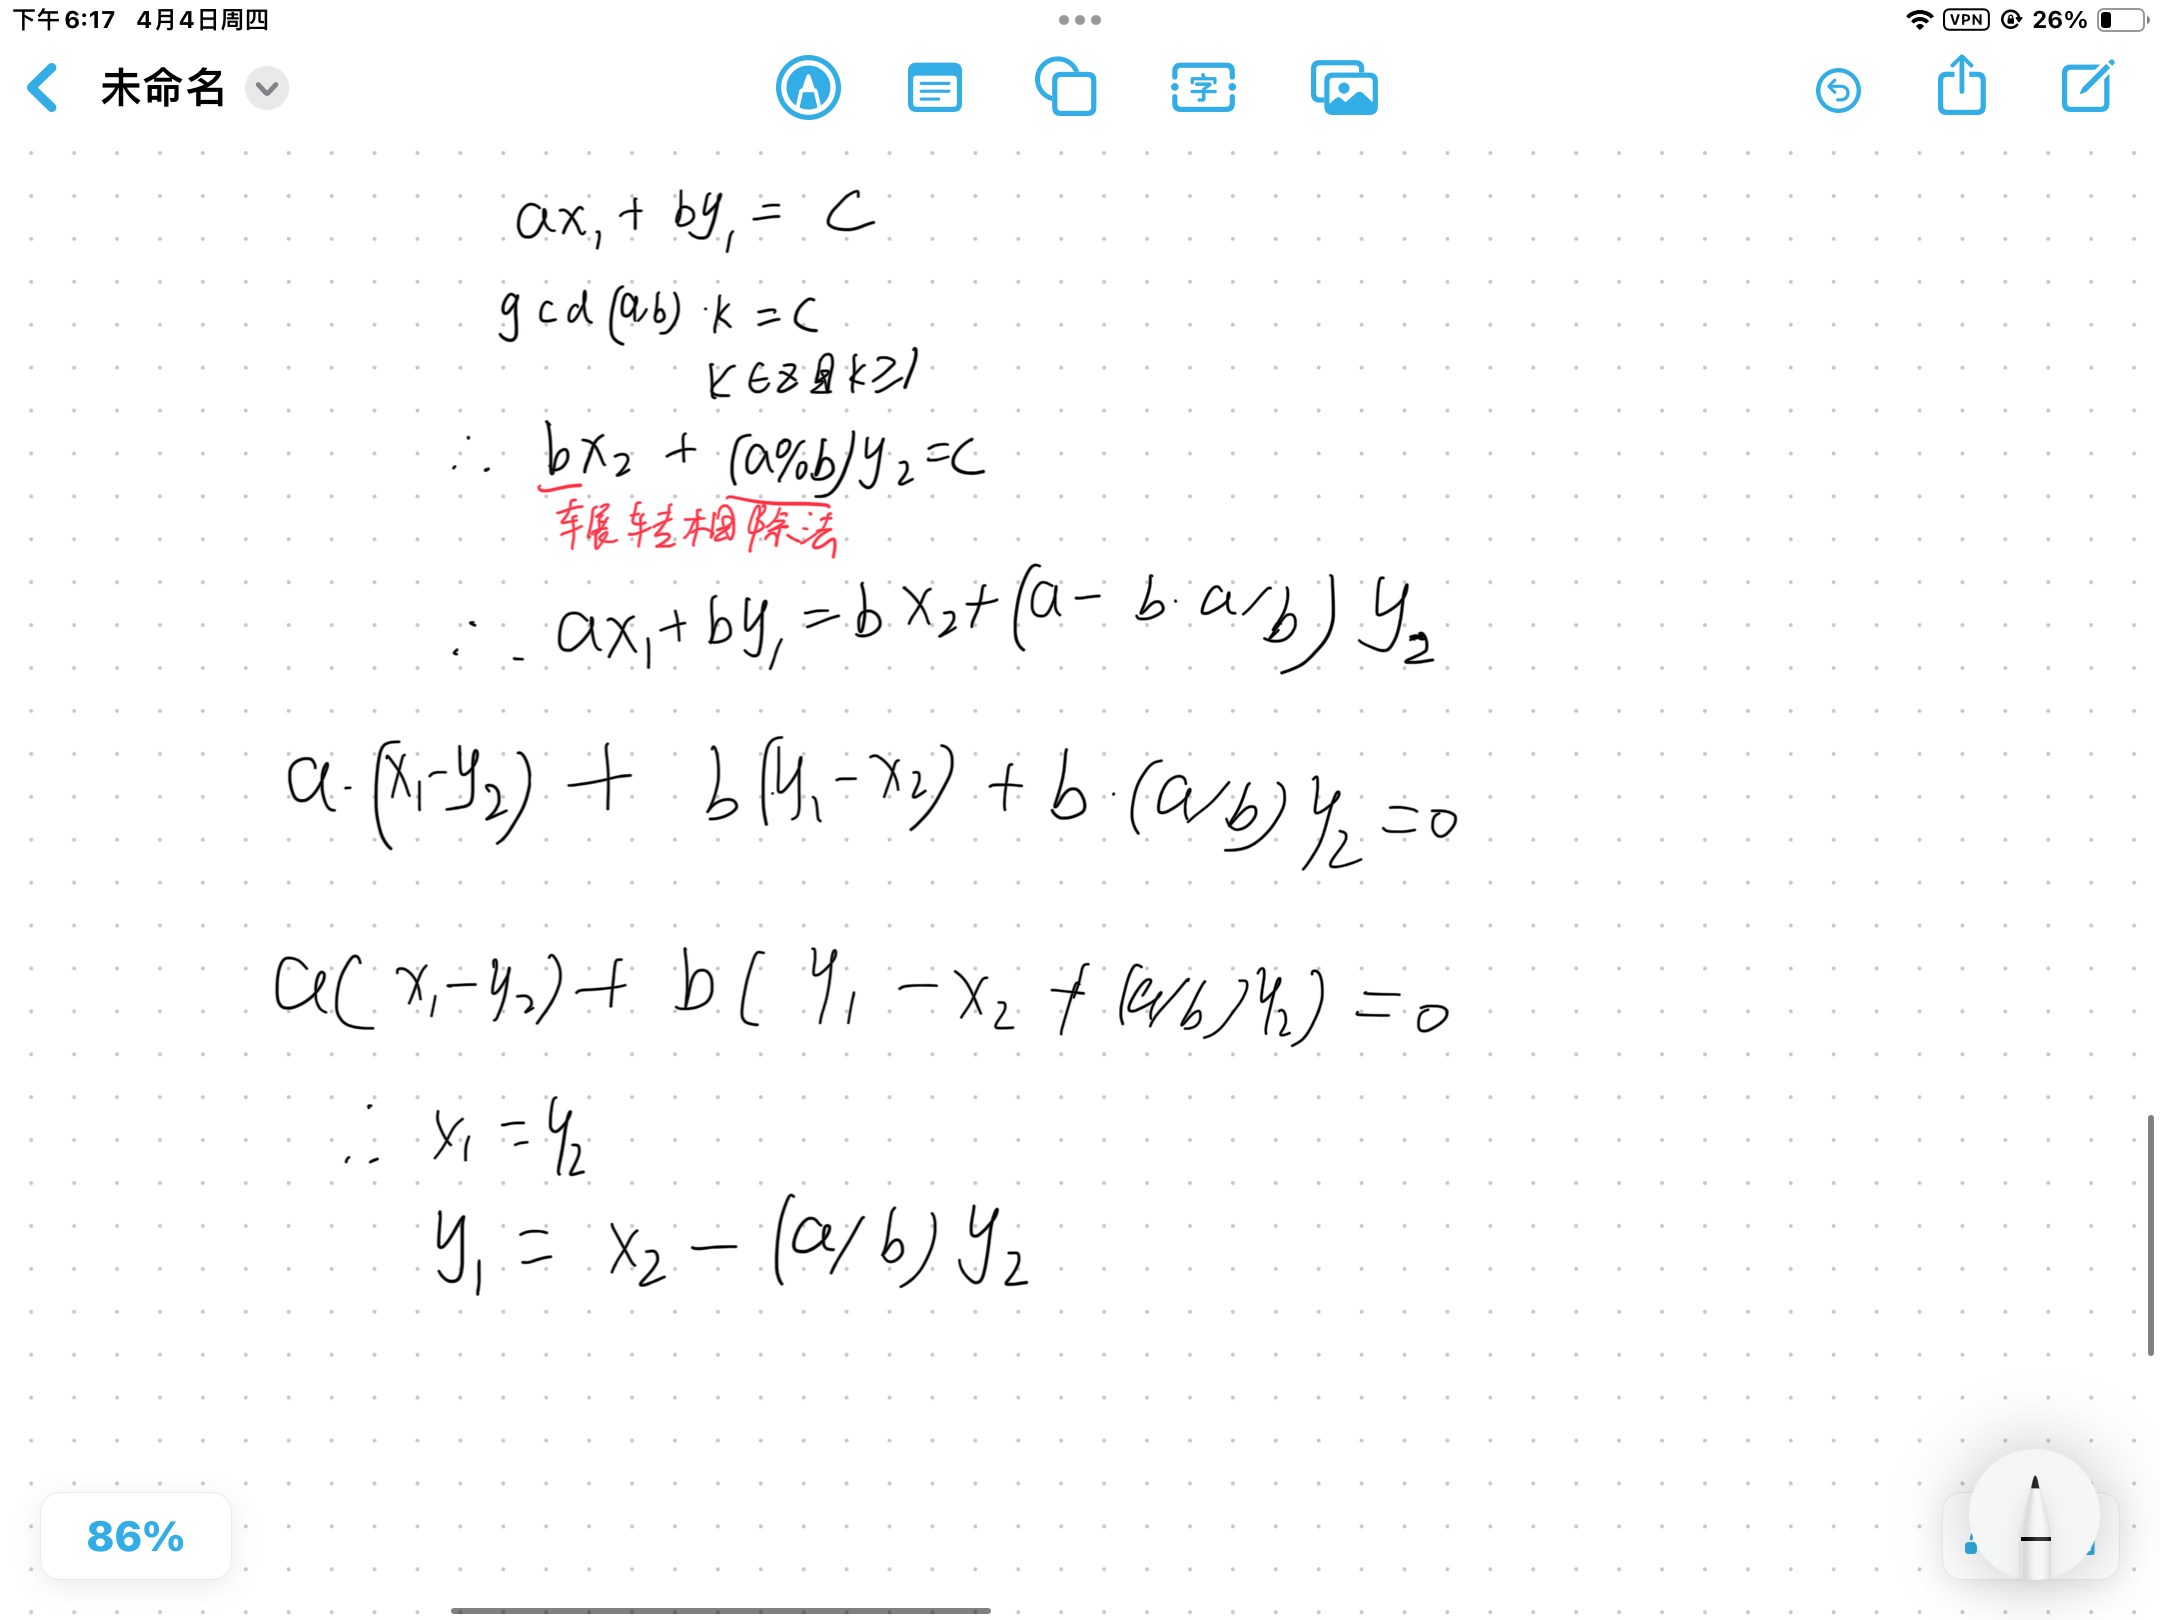 下午6:17 4月4日周四
VPN 26%
未命名
字
ax₁ + by₁ = C
gcd(ab)·k = C
k∈Z且k≥1
∴ bx₂ + (a%b)y₂ = C
辗转相除法
∴ ax₁ + by₁ = bx₂ + (a - b·a/b) y₂
a·(x₁-y₂) + b(y₁-x₂) + b·(a/b)y₂ = 0
a(x₁-y₂) + b(y₁ - x₂ + (a/b)y₂) = 0
∴ x₁ = y₂
y₁ = x₂ - (a/b) y₂
86%